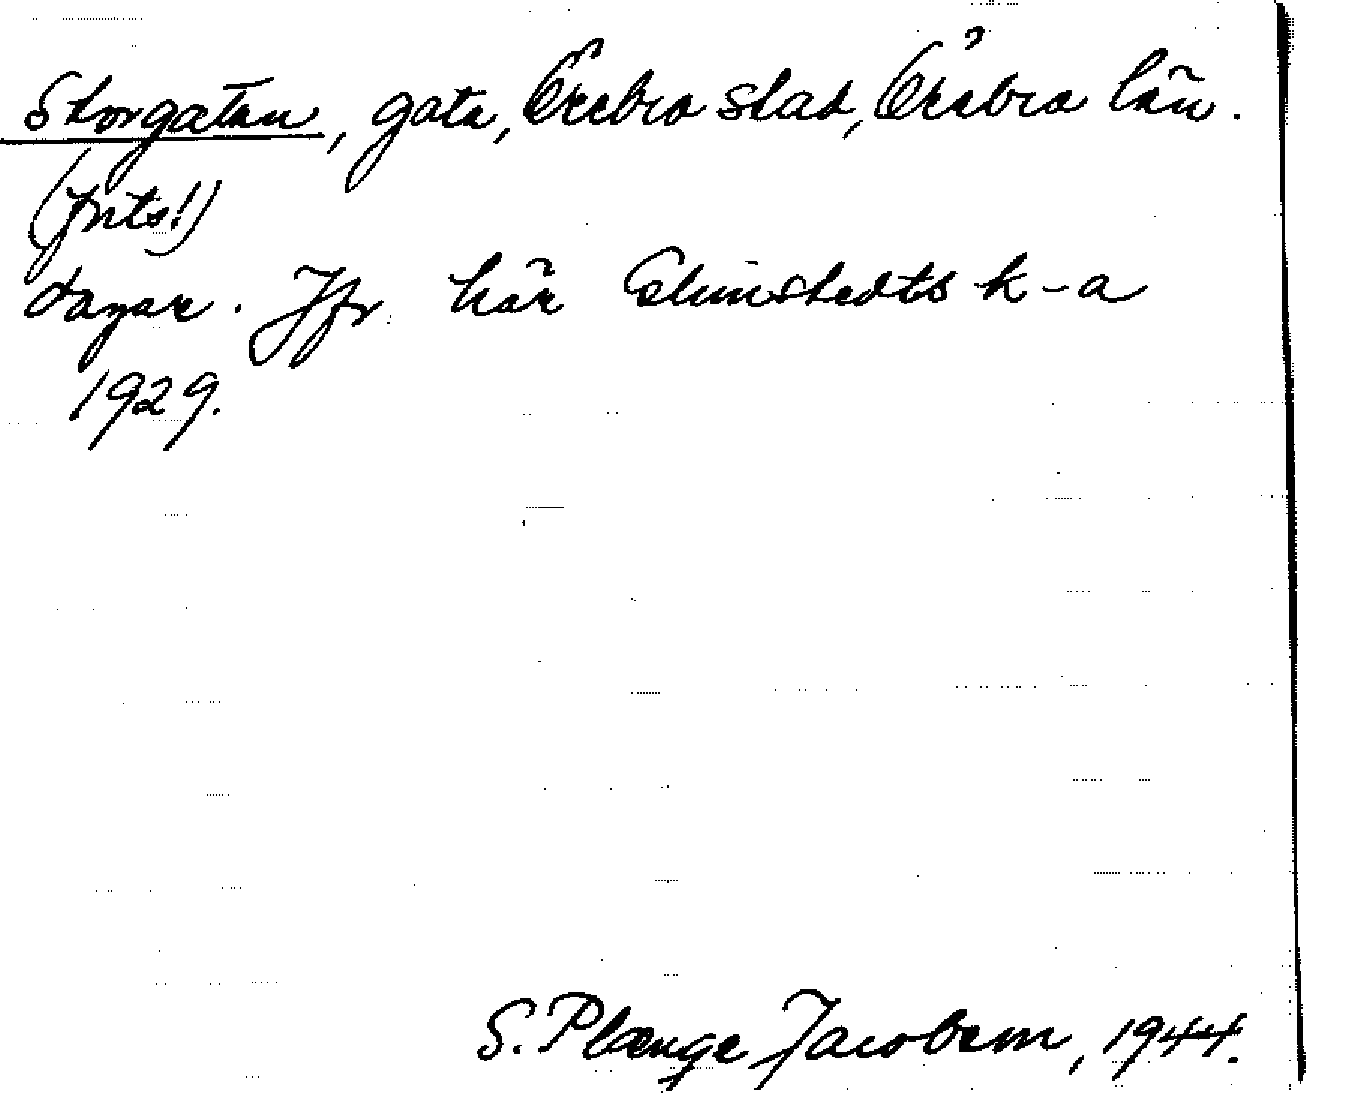 Storgatan, gata, Örebro stad, Örebro län.
(fints!)
dagar. Jfr här Elmstedts k-a
1929.
S. Plænge Jacobson, 1944.